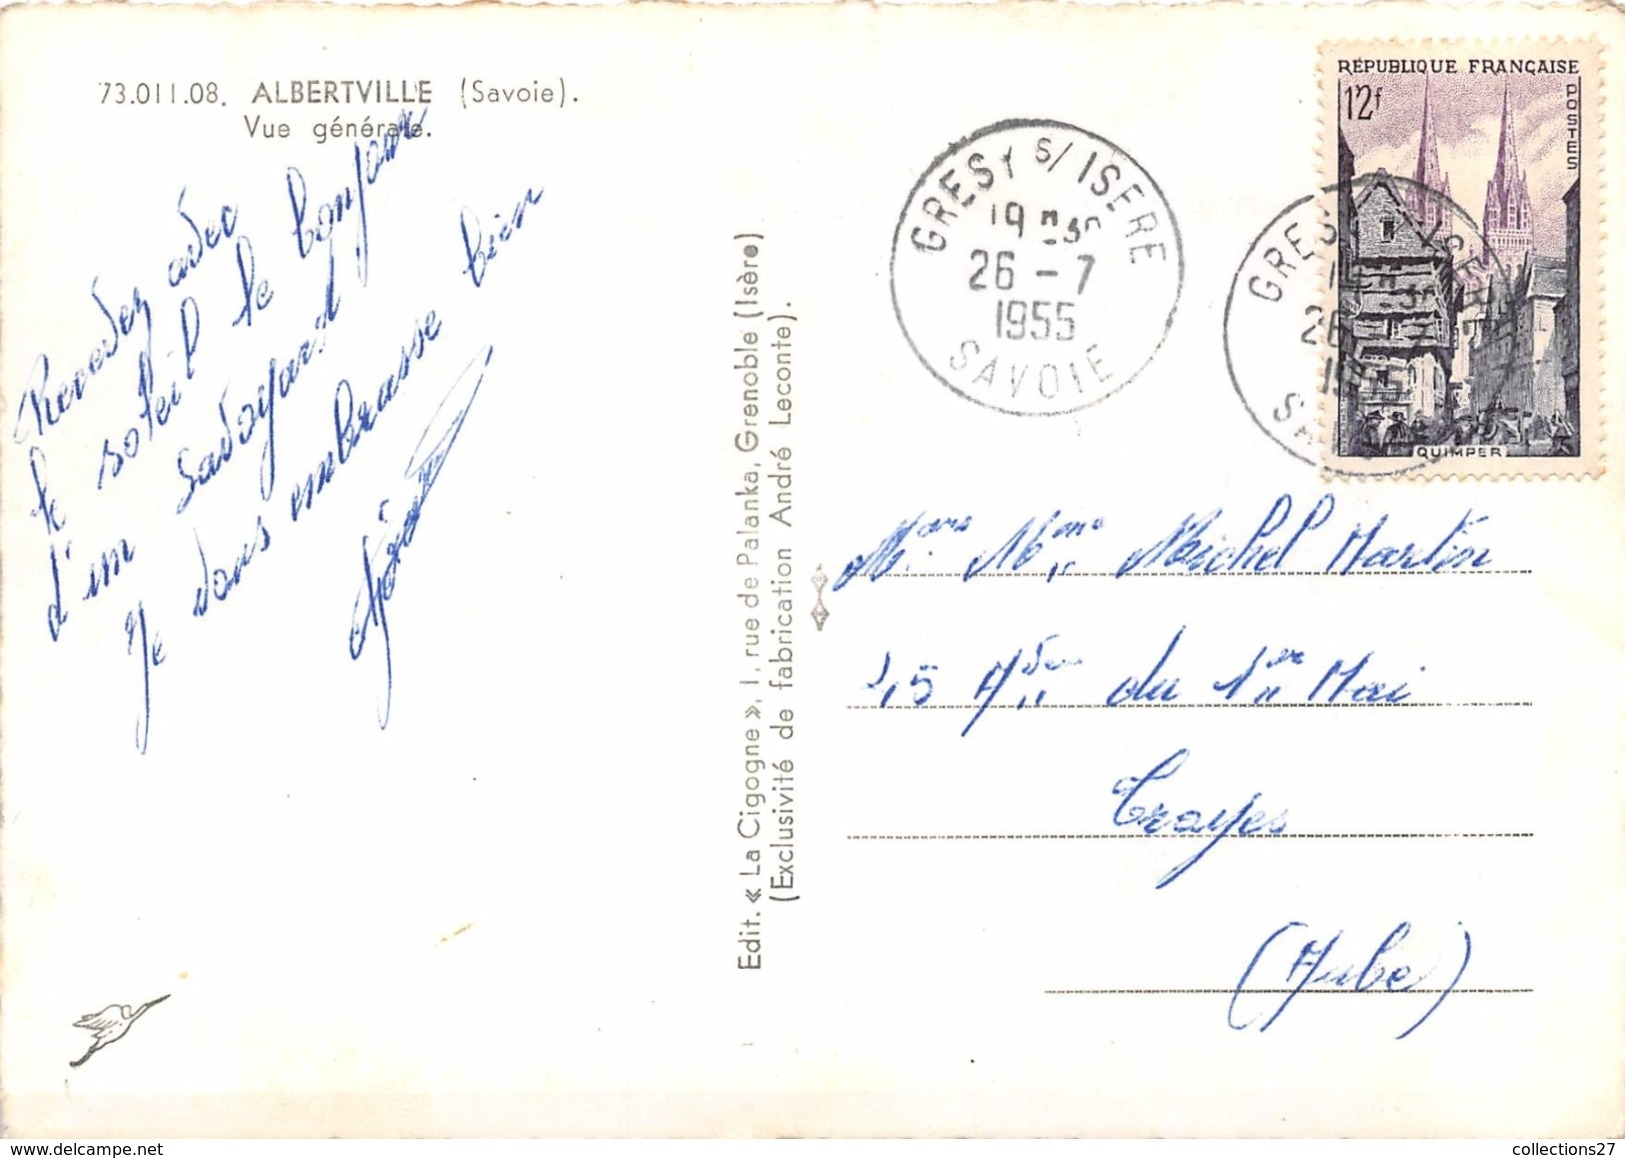 73.011.08. ALBERTVILLE (Savoie).
Vue générale.
Recevez avec
le soleil le bonjour
d'un Savoyard
Je vous embrasse bien
Edit. « La Cigogne », 1, rue de Palanka, Grenoble (Isère)
(Exclusivité de fabrication André Leconte).
GRESY S/ISERE
19H30
26-7
1955
SAVOIE
RÉPUBLIQUE FRANÇAISE
12f
POSTES
QUIMPER
GRESY S/ISERE
26-7
1955
Mme Michel Martin
du 1er Mai
Troyes
(Aube)
collections27